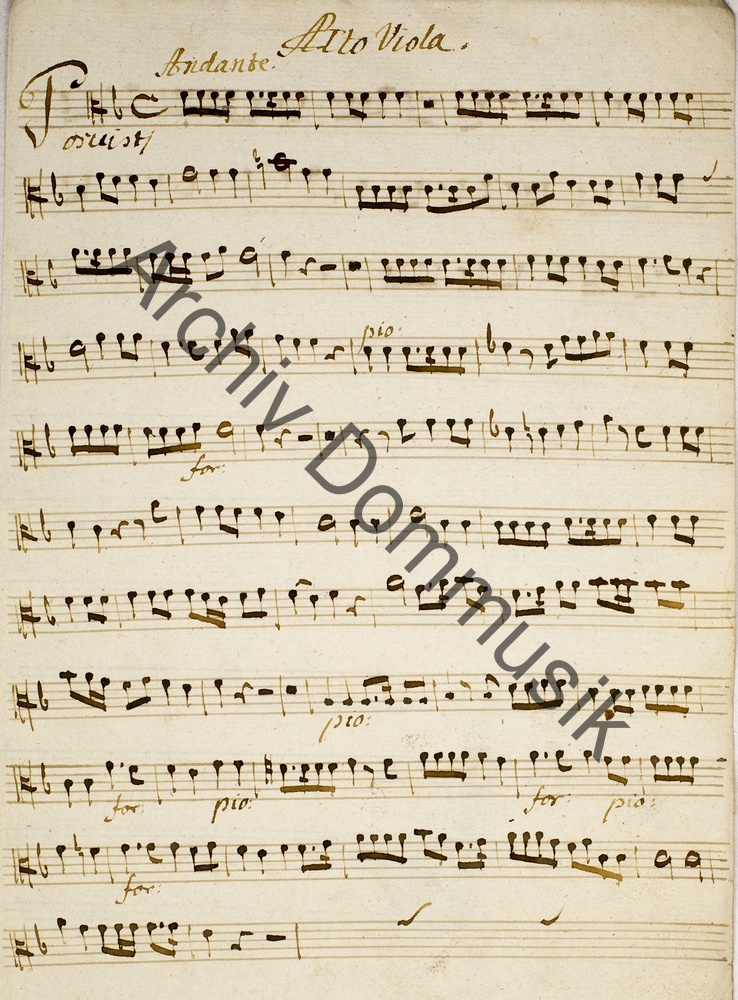 Alto Viola.
Andante.
Posuisti
pio:
for:
pio:
for: pio: for: pio:
for:
Archiv Dommusik